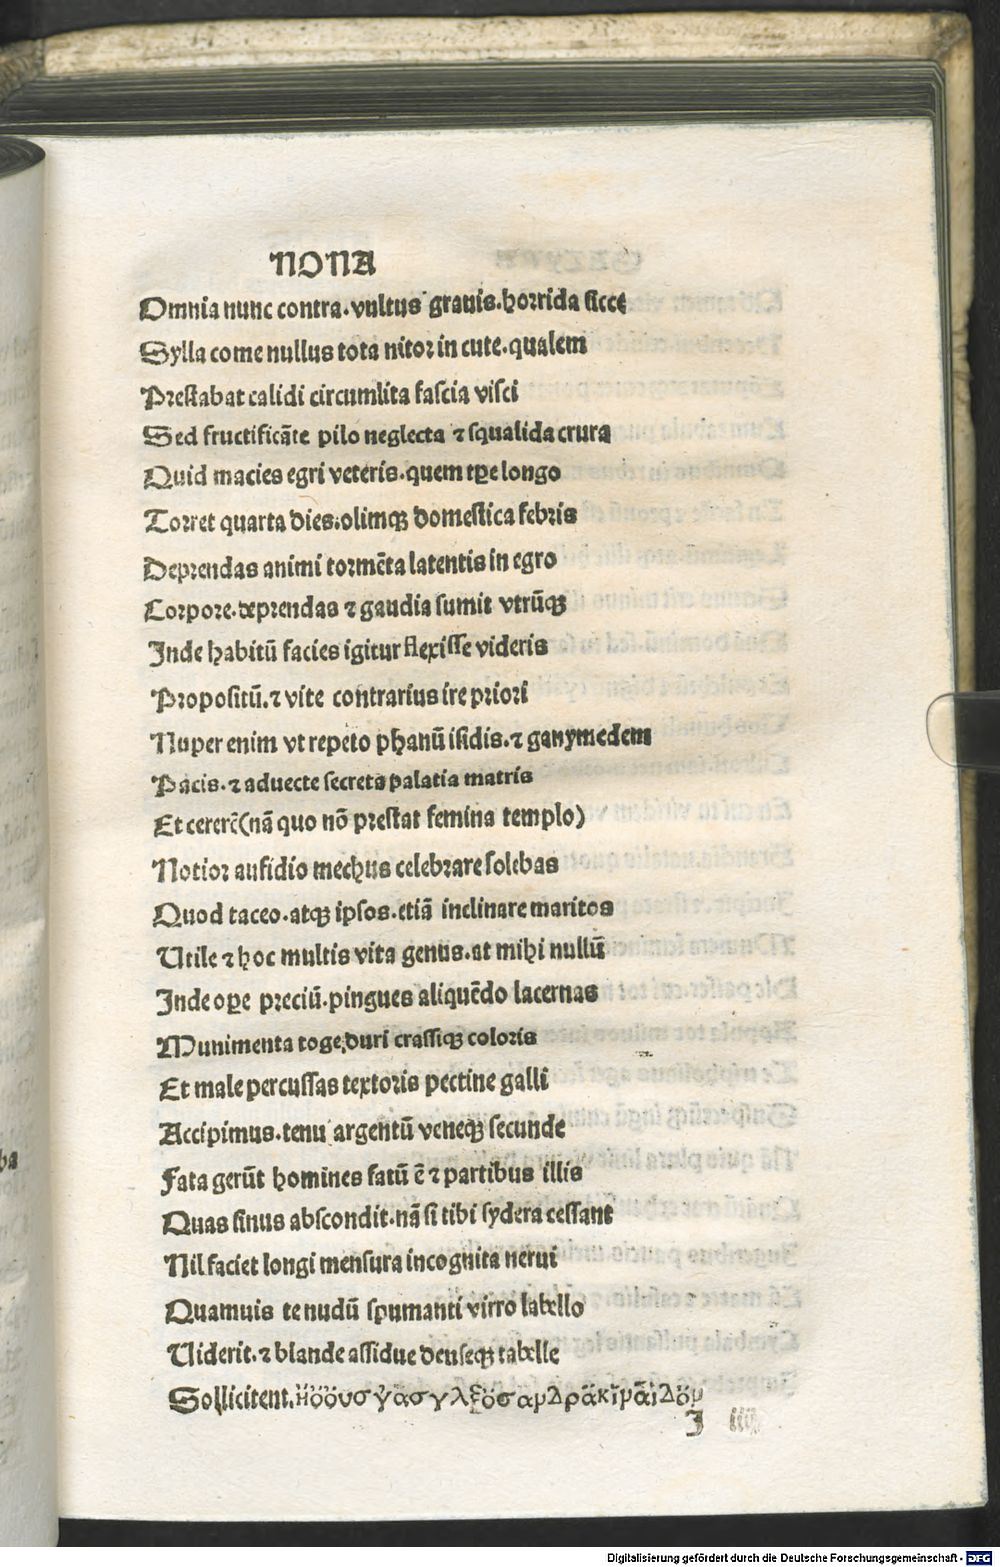 NONA
Omnia nunc contra. vultus grauis. horrida sicce
Sylla come nullus tota nitor in cute. qualem
Prestabat calidi circumlita fascia visci
Sed fructificãte pilo neglecta ⁊ squalida crura
Quid macies egri veteris. quem tꝑe longo
Torret quarta dies. olimqꝫ domestica febris
Deprendas animi tormẽta latentis in egro
Corpore. deprendas ⁊ gaudia sumit vtrũqꝫ
Inde habitũ facies igitur flexisse videris
Propositũ. ⁊ vite contrarius ire priori
Nuper enim vt repeto phanũ isidis. ⁊ ganymedem
Pacis. ⁊ aduecte secreta palatia matris
Et cererẽ (nã quo nõ prestat femina templo)
Notior aufidio mechus celebrare solebas
Quod taceo. atqꝫ ipsos. etiã inclinare maritos
Utile ⁊ hoc multis vita genus. at mihi nullũ
Inde oꝑe preciũ. pingues aliquẽdo lacernas
Munimenta toge. duri crassiqꝫ coloris
Et male percussas textoris pectine galli
Accipimus. tenu argentũ veneqꝫ secunde
Fata gerũt homines fatũ ẽ ⁊ partibus illis
Quas sinus abscondit. nã si tibi sydera cessant
Nil faciet longi mensura incognita nerui
Quamuis te nudũ spumanti virro labello
Uiderit. ⁊ blande assidue denseqꝫ tabelle
Sollicitent.
I iiij
Digitalisierung gefördert durch die Deutsche Forschungsgemeinschaft - DFG